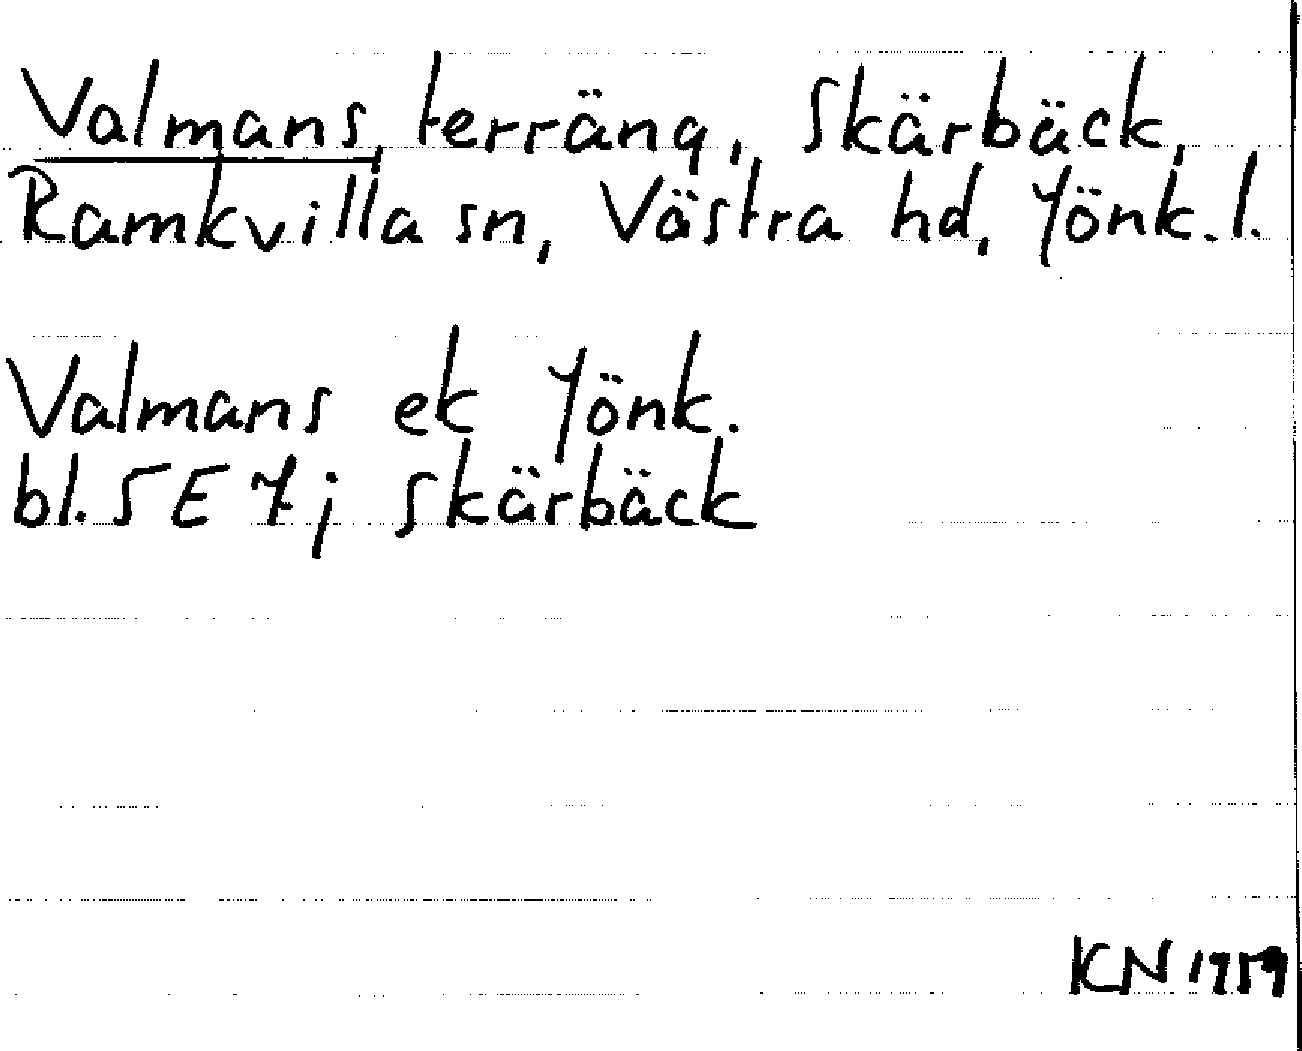 Valmans, terräng, Skärbäck,
Ramkvilla sn, Västra hd, Jönk. l.
Valmans ek Jönk.
bl. 5E 7j Skärbäck
KN 1959